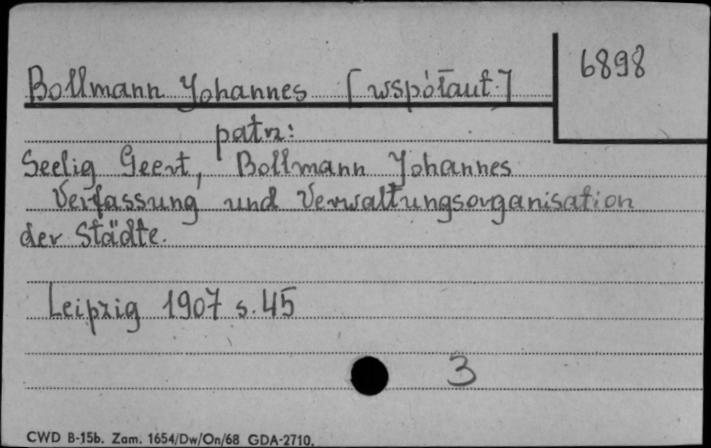 Bollmann Johannes [współaut.]
6898
patrz:
Seelig Geert, Bollmann Johannes
Verfassung und Verwaltungsorganisation
der Städte.
Leipzig 1907 s. 45
3
CWD B-15b. Zam. 1654/Dw/On/68 GDA-2710.